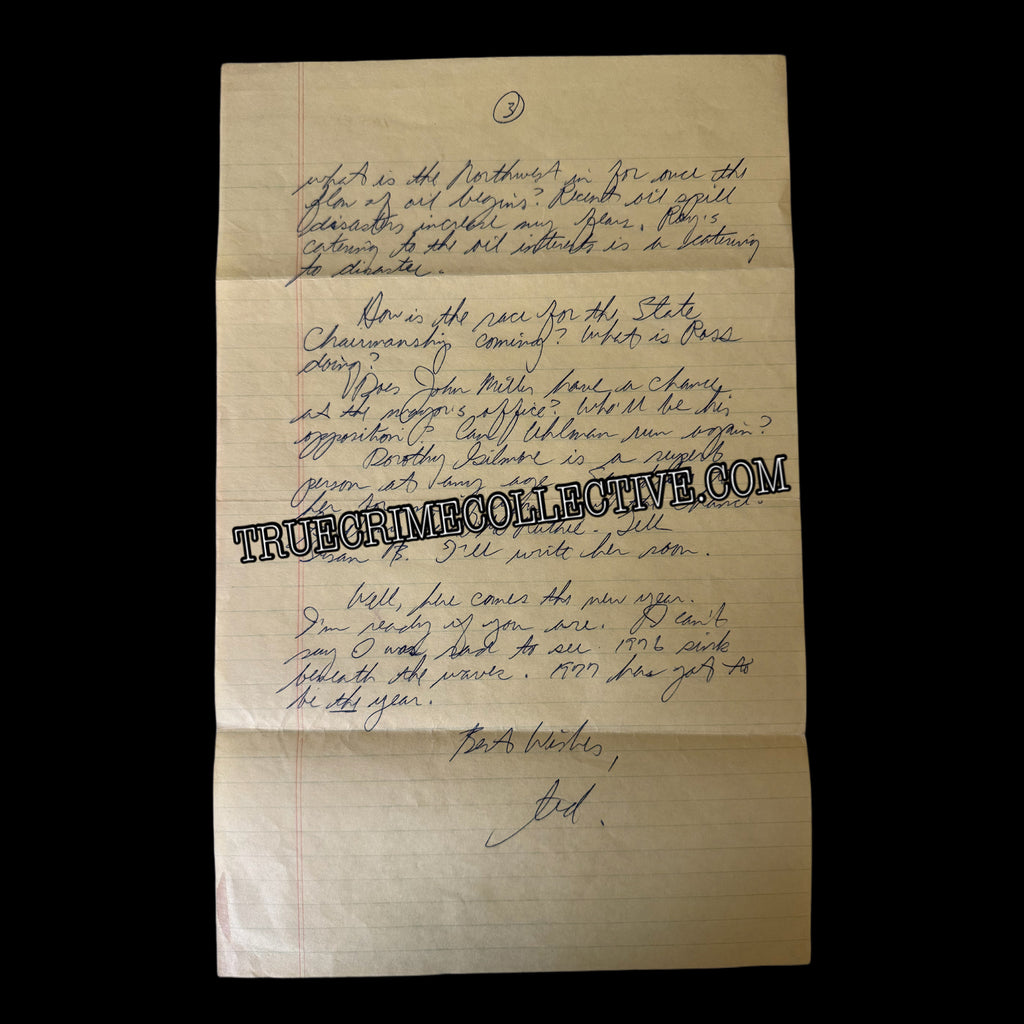 3
what is the Northwest in for once the
flow of oil begins? Recent oil spill
disasters increase my fears. Ray's
catering to the oil interests is a catering
to disaster.
How is the race for the State
Chairmanship coming? What is Ross
doing?
Does John Miller have a chance
at the mayor's office? Who'll be his
opposition? Can Uhlman run again?
Dorothy Gilmore is a superb
person at any age.
her for
TRUECRIMECOLLECTIVE.COM
Ruthie. Tell
Susan B. I'll write her soon.
Well, here comes the new year.
I'm ready if you are. I can't
say I was sad to see 1976 sink
beneath the waves. 1977 has got to
be the year.
Best Wishes,
ted.